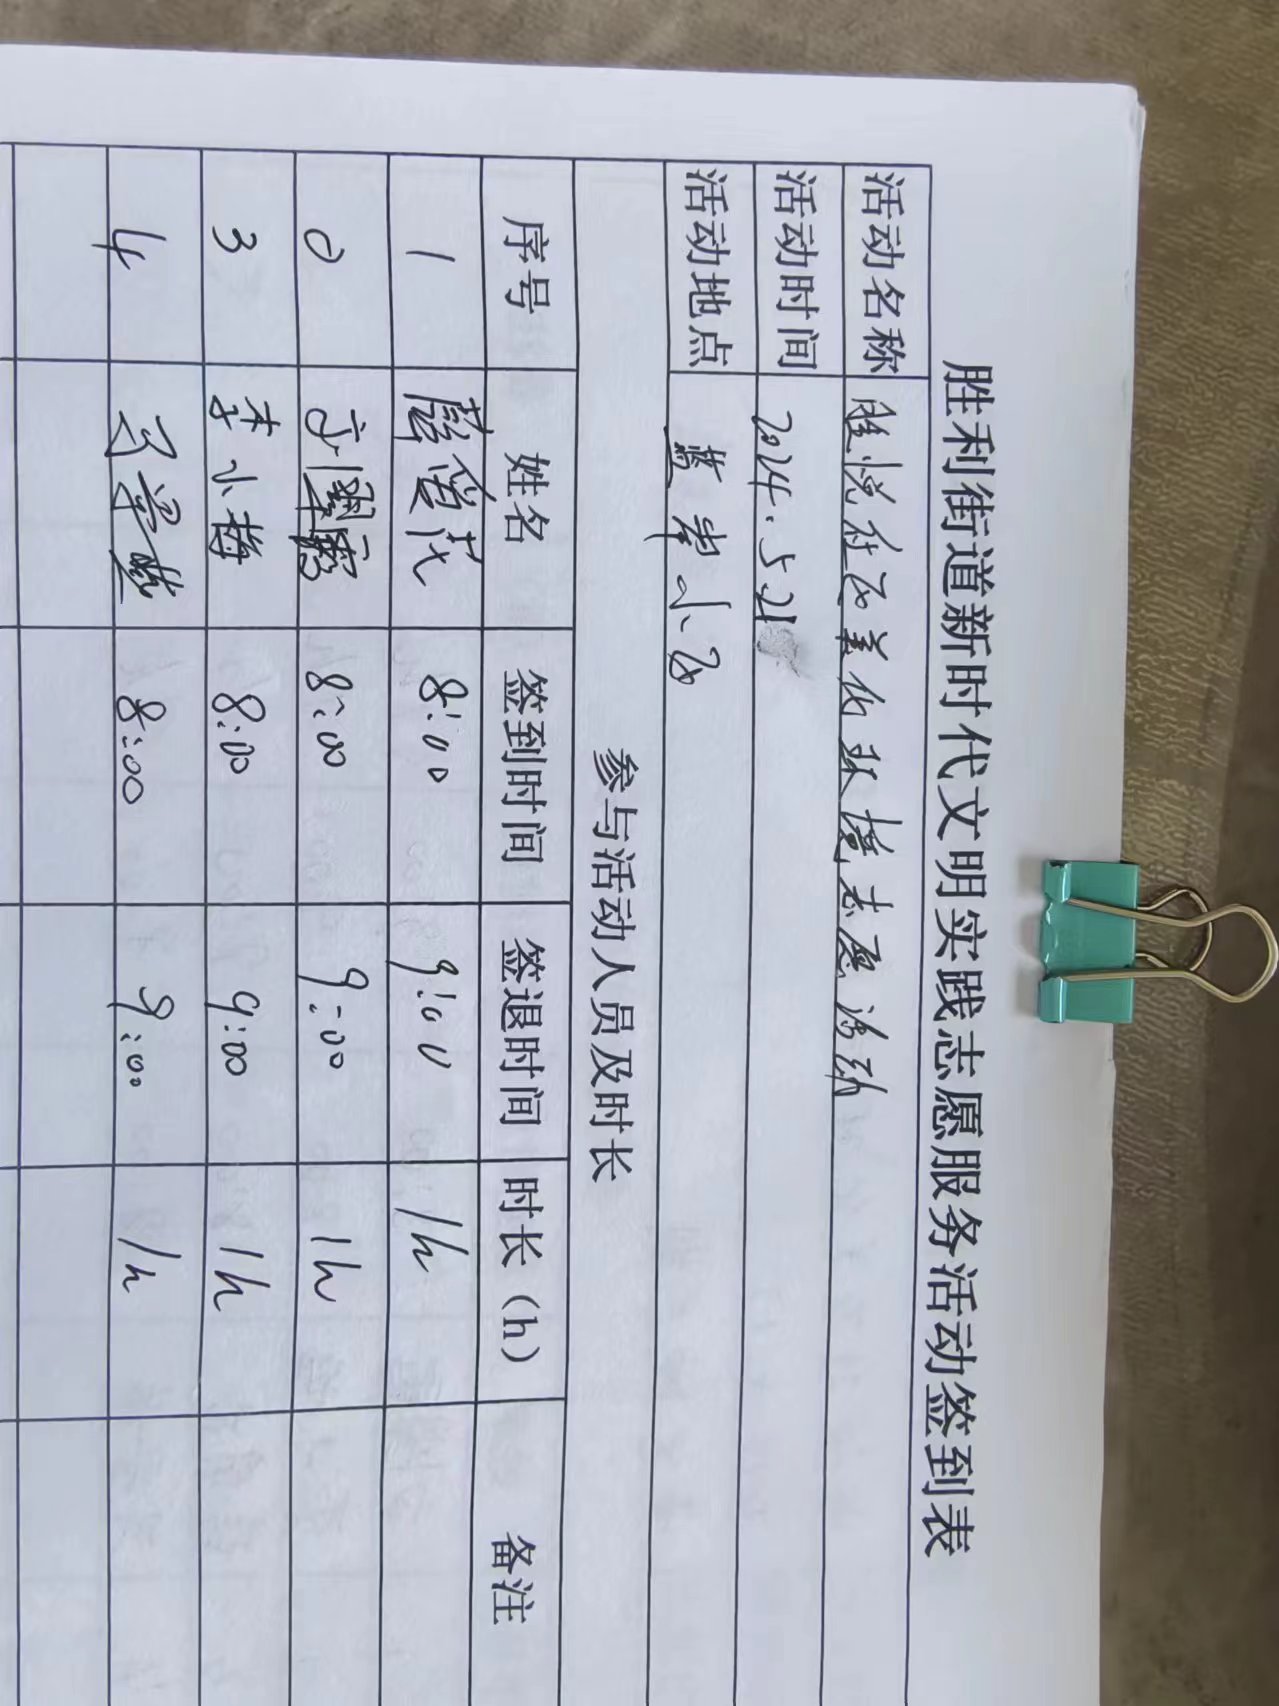 胜利街道新时代文明实践志愿服务活动签到表
活动名称 胜悦社区美化环境志愿活动
活动时间 2024.5.21
活动地点 蓝岸小区
参与活动人员及时长
序号 姓名 签到时间 签退时间 时长（h） 备注
1 8:00 9:00 1h
2 8:00 9:00 1h
3 李小梅 8:00 9:00 1h
4 8:00 9:00 1h